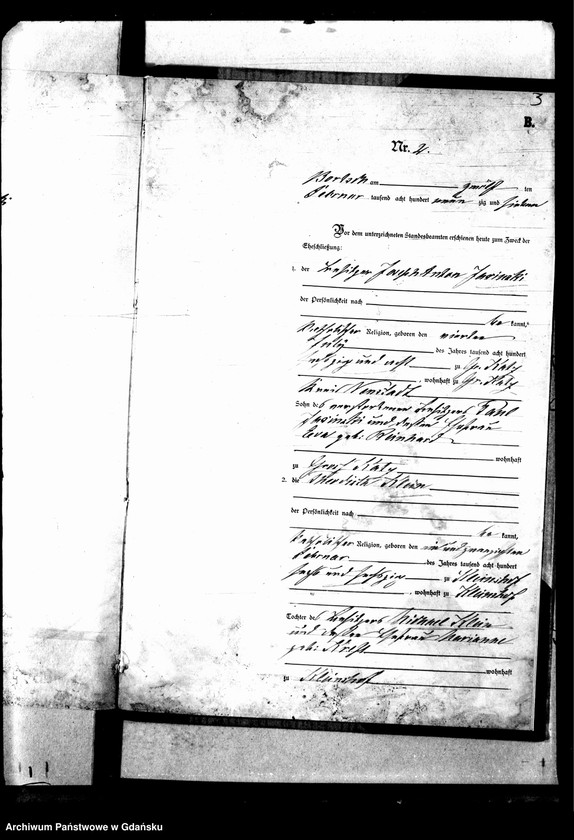 3
B.
Nr. 2.
am zwölften
Februar tausend acht hundert neunzig und sieben
Vor dem unterzeichneten Standesbeamten erschienen heute zum Zweck der
Eheschließung:
1. der Besitzer Joseph Anton Jasinski
der Persönlichkeit nach
be kannt,
katholischer Religion, geboren den vierten
July des Jahres tausend acht hundert
sechzig und acht zu Gr. Katz
, wohnhaft zu Gr. Katz
Kreis Neustadt
Sohn des verstorbenen Besitzers Paul
Jasinski und dessen Ehefrau
Eva geb. Reinhard
wohnhaft
zu Gross Katz
2. die Klein
der Persönlichkeit nach
be kannt,
katholischer Religion, geboren den ein und zwanzigsten
Februar des Jahres tausend acht hundert
sechs und siebzig zu Kleinhof
, wohnhaft zu Kleinhof
Tochter des Besitzers Michael Klein
und dessen Ehefrau Marianne
geb.
wohnhaft
zu Kleinhof
Archiwum Państwowe w Gdańsku